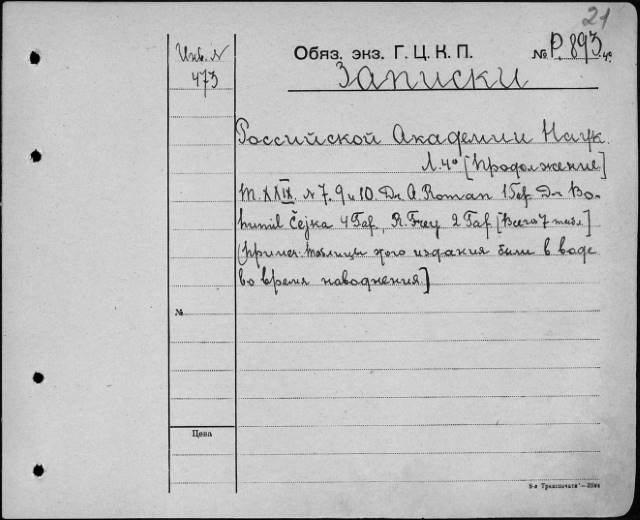 21
Инв. N
473
Обяз. экз. Г. Ц. К. П.
№ Р. 893 4°
Записки
Российской Академии Наук.
Л. 4° [Продолжение]
Т. XXIX. N 7. 9 и 10. Dr A. Roman 1 Таб. Dr Bo-
humil Čejka 4 Таб., R. Frey 2 Таб. [Всего 7 табл.]
(Примеч. таблицы этого издания были в воде
во время наводнения.]
№
Цена